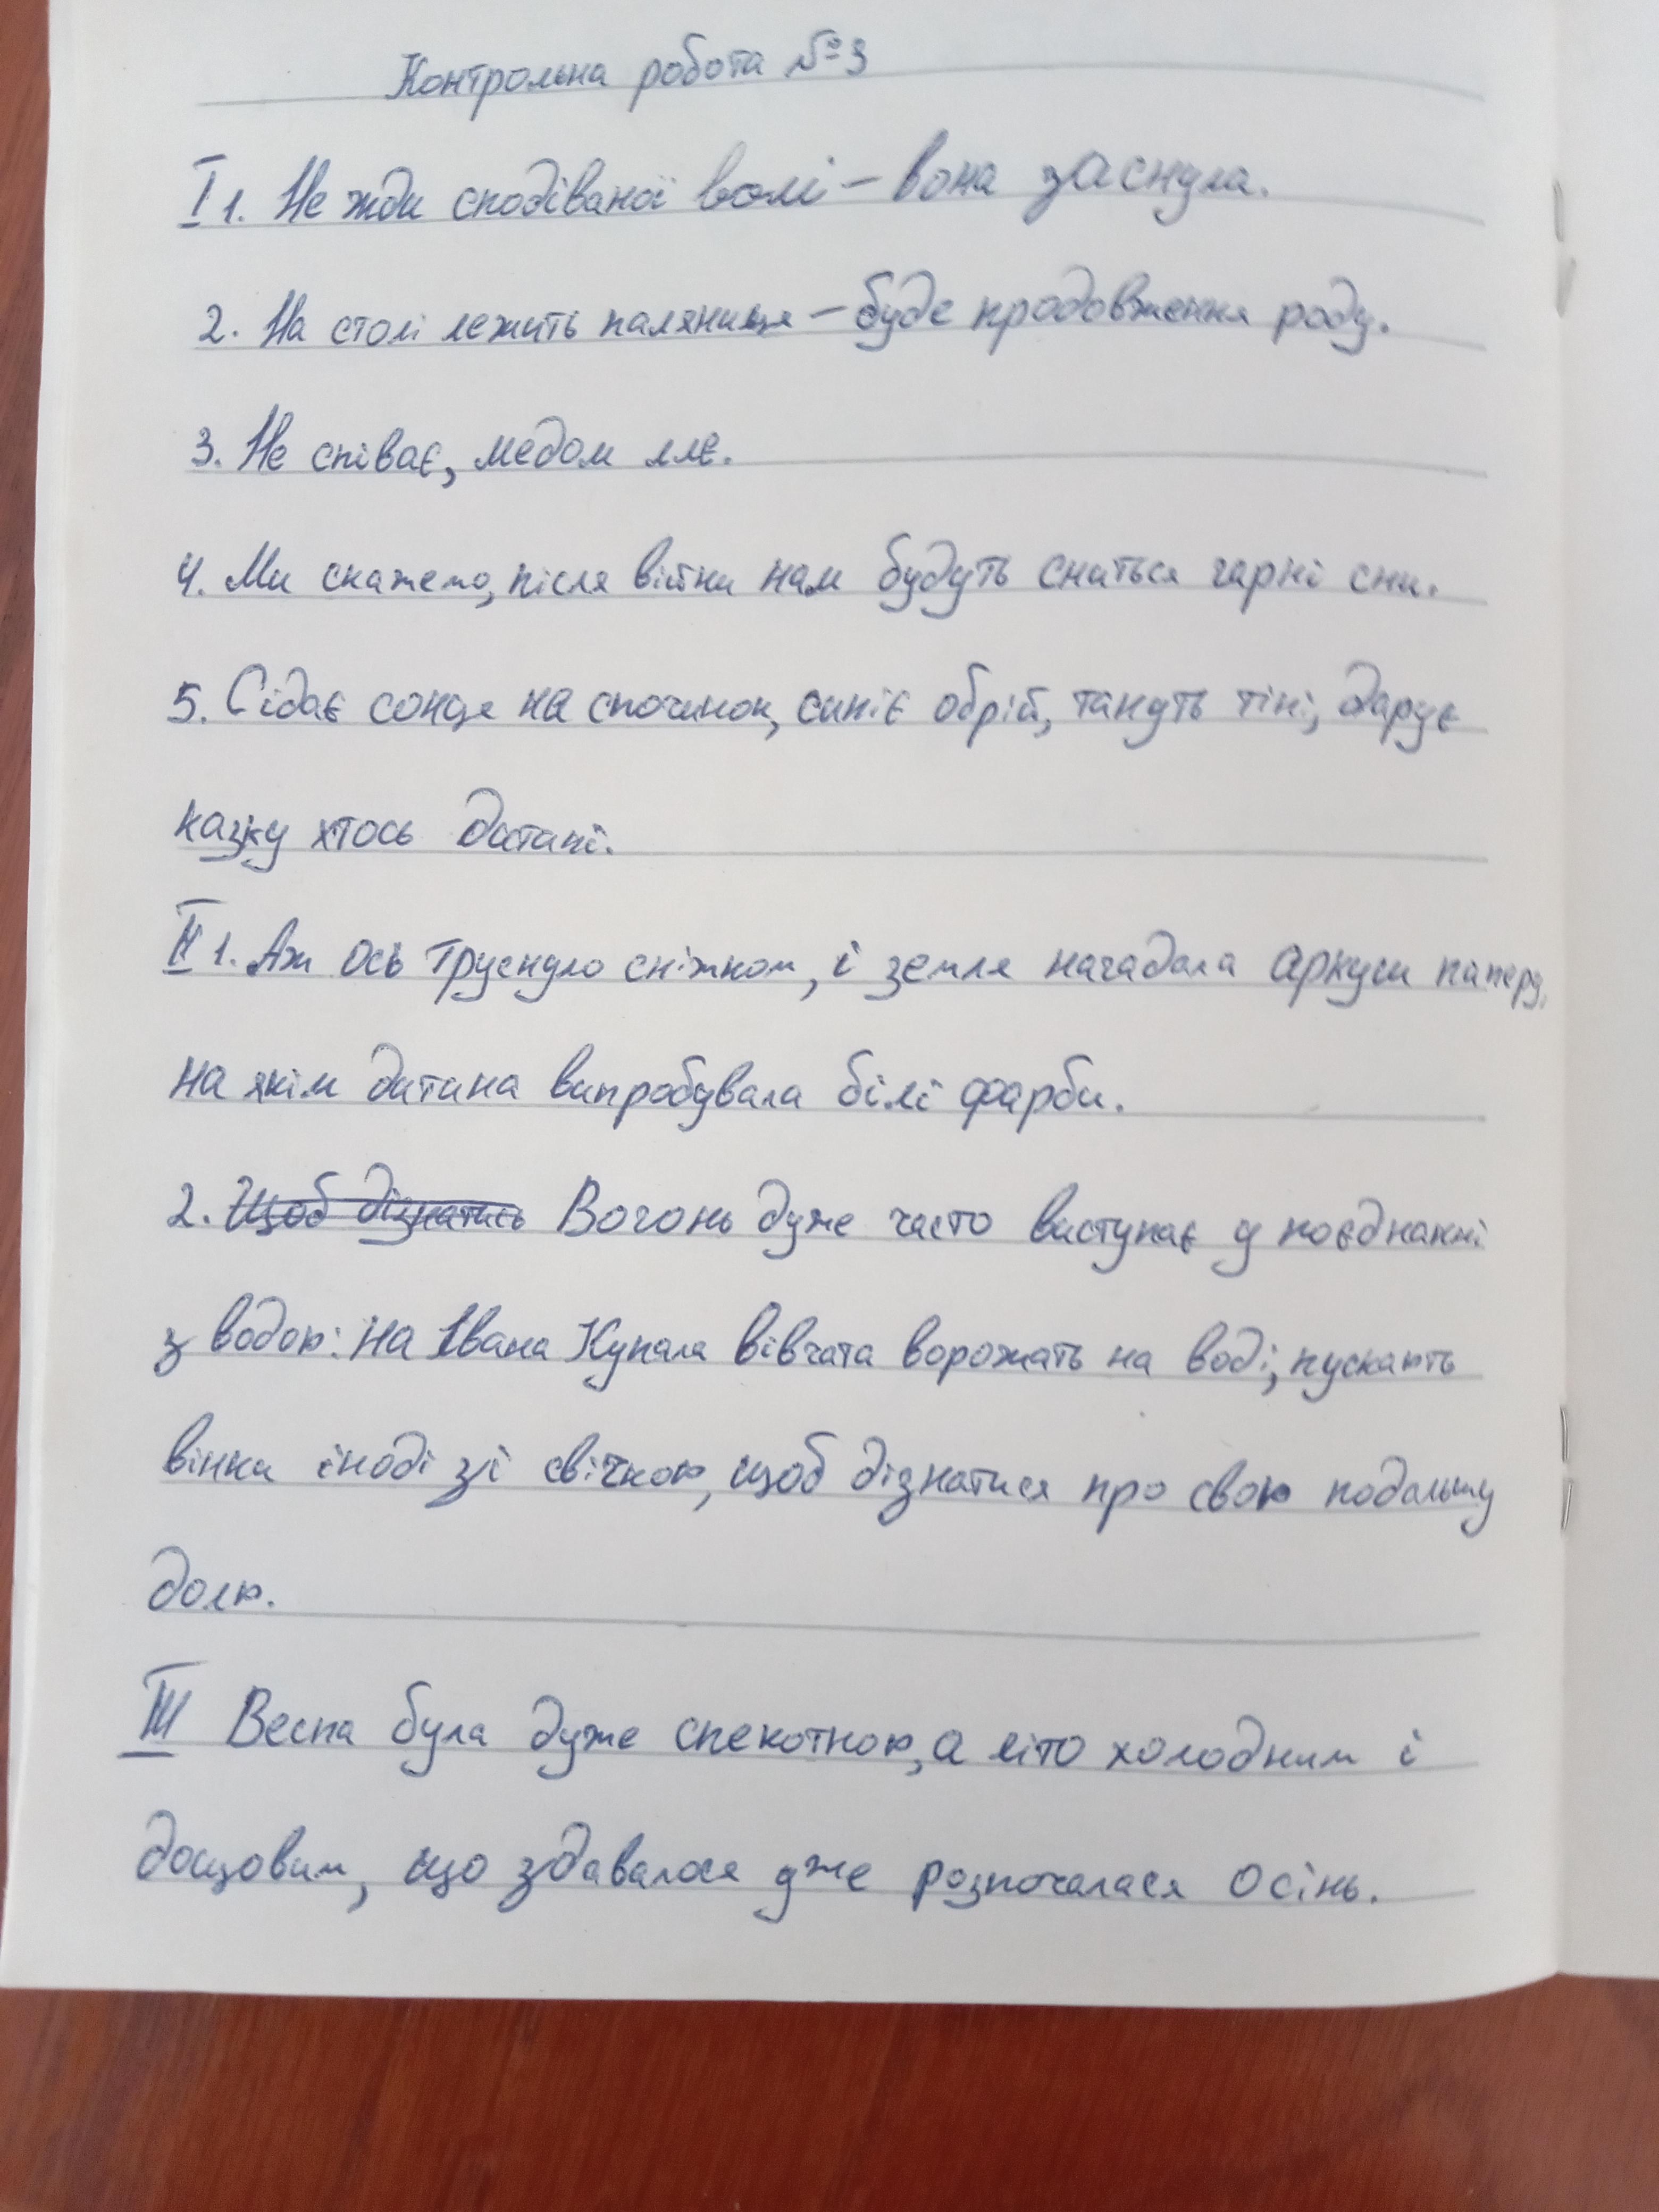 Контрольна робота №3
I 1. Не жди сподіваної волі – вона заснула.
2. На столі лежить паляниця – буде продовження роду.
3. Не співає, медом ллє.
4. Ми скажемо, після війни нам будуть сниться гарні сни.
5. Сідає сонце на спочинок, синіє обрій, тануть тіні, дарує
казку хтось дитині.
II 1. Аж ось труснуло сніжком, і земля нагадала аркуш паперу,
на якім дитина випробувала білі фарби.
2. Щоб дізнатись Вогонь дуже часто виступає у поєднанні
з водою: на Івана Купала вівчата ворожать на воді, пускають
вінки іноді зі свічкою, щоб дізнатися про свою подальшу
долю.
III Весна була дуже спекотною, а літо холодним і
дощовим, що здавалося уже розпочалася осінь.